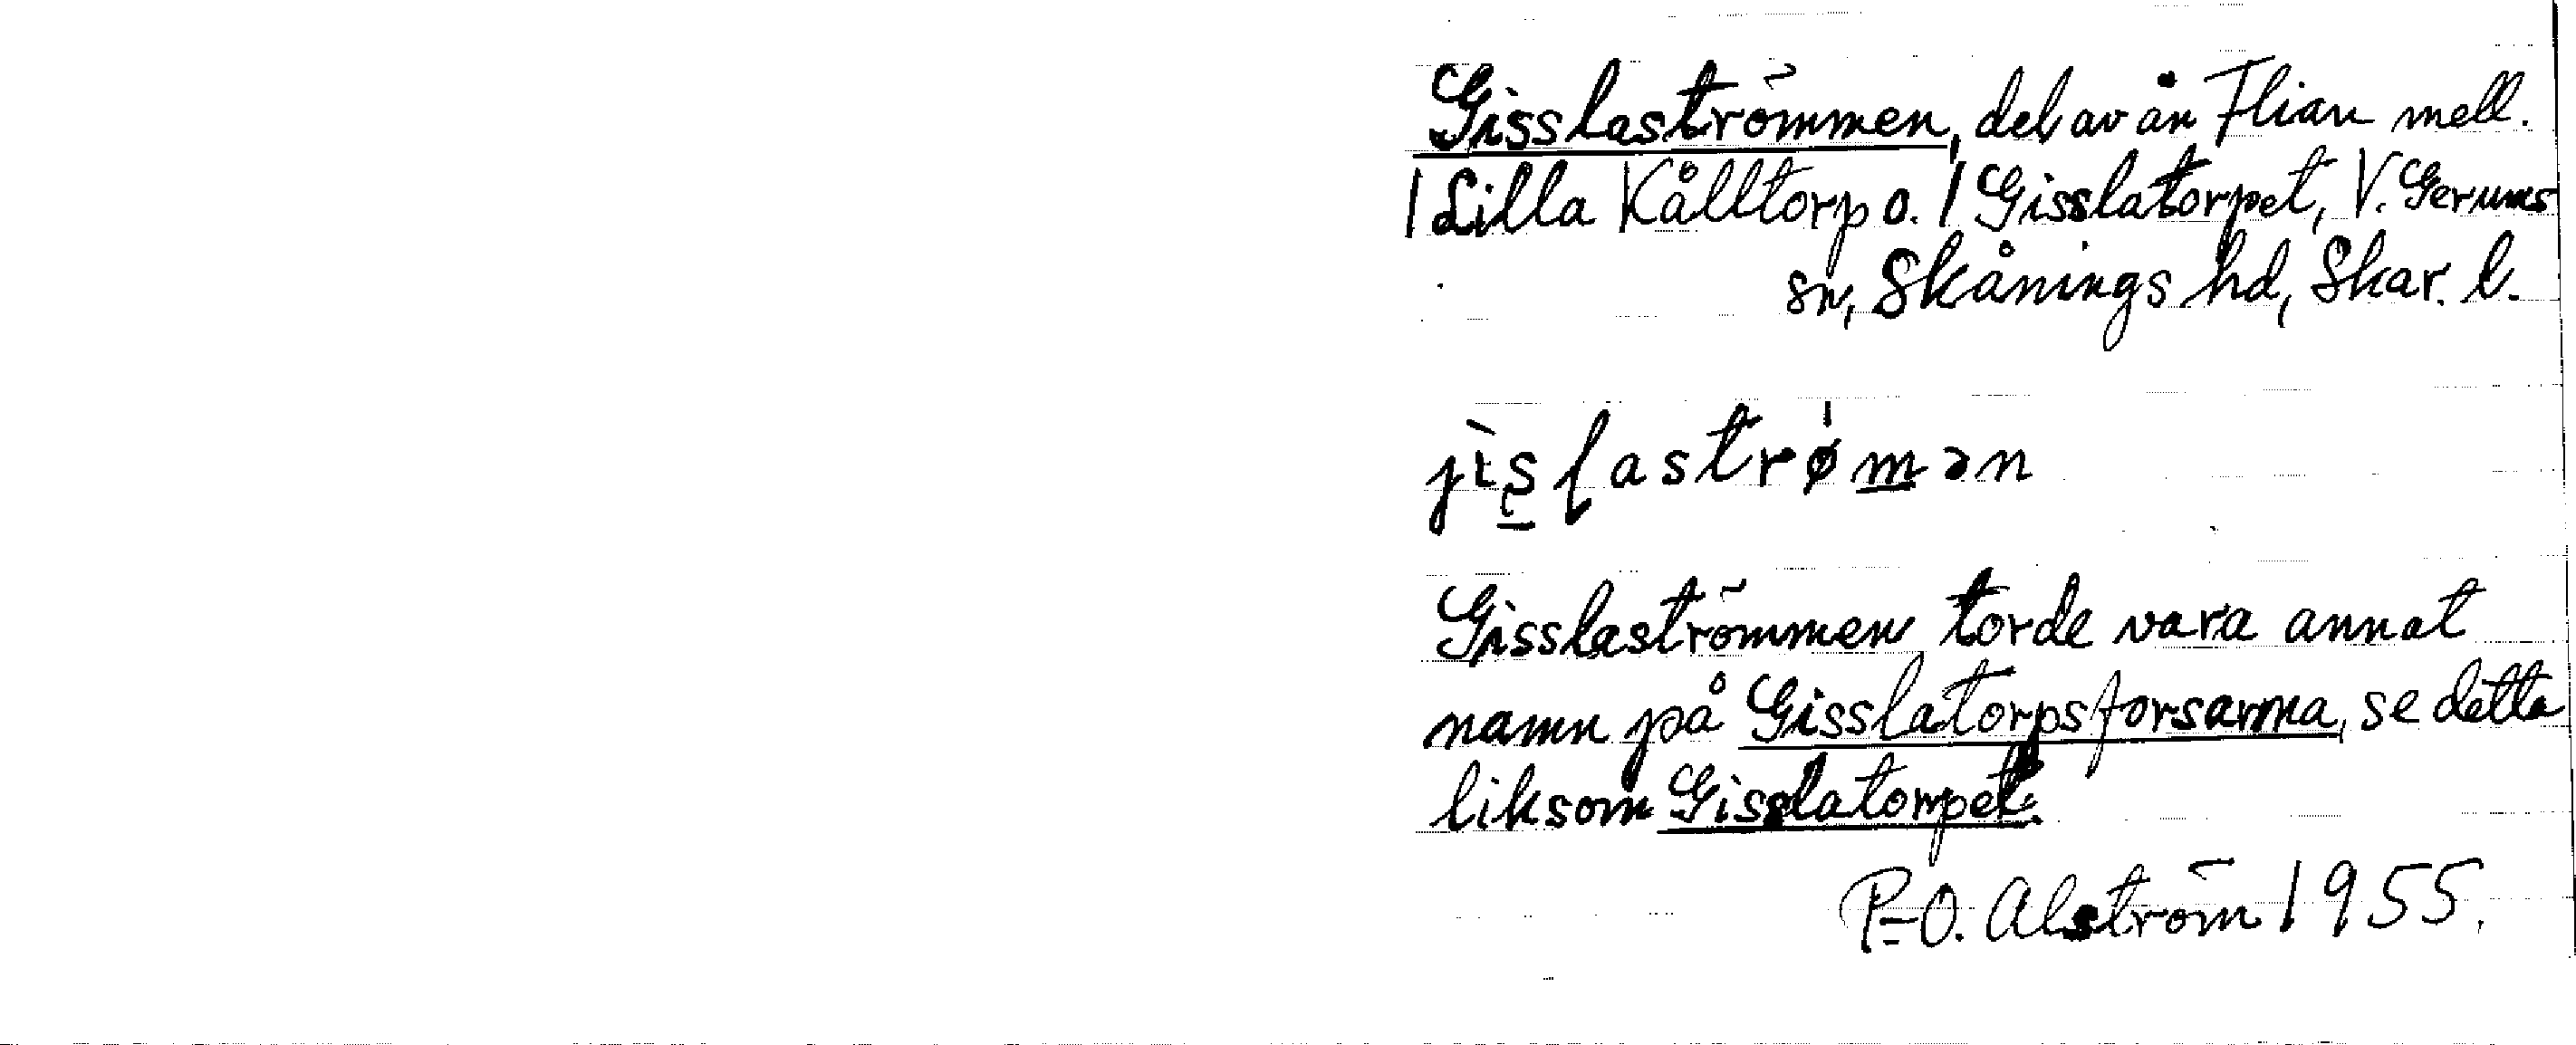 Gisslaströmmen, del av ån Flian mell.
| Lilla Kålltorp o. | Gisslatorpet, V. Gerums
sn, Skånings hd, Skar. l.
Gisslaströmmen torde vara annat
namn på Gisslatorpsforsarna, se detta
liksom Gisslatorpet.
P-O. Alström 1955.